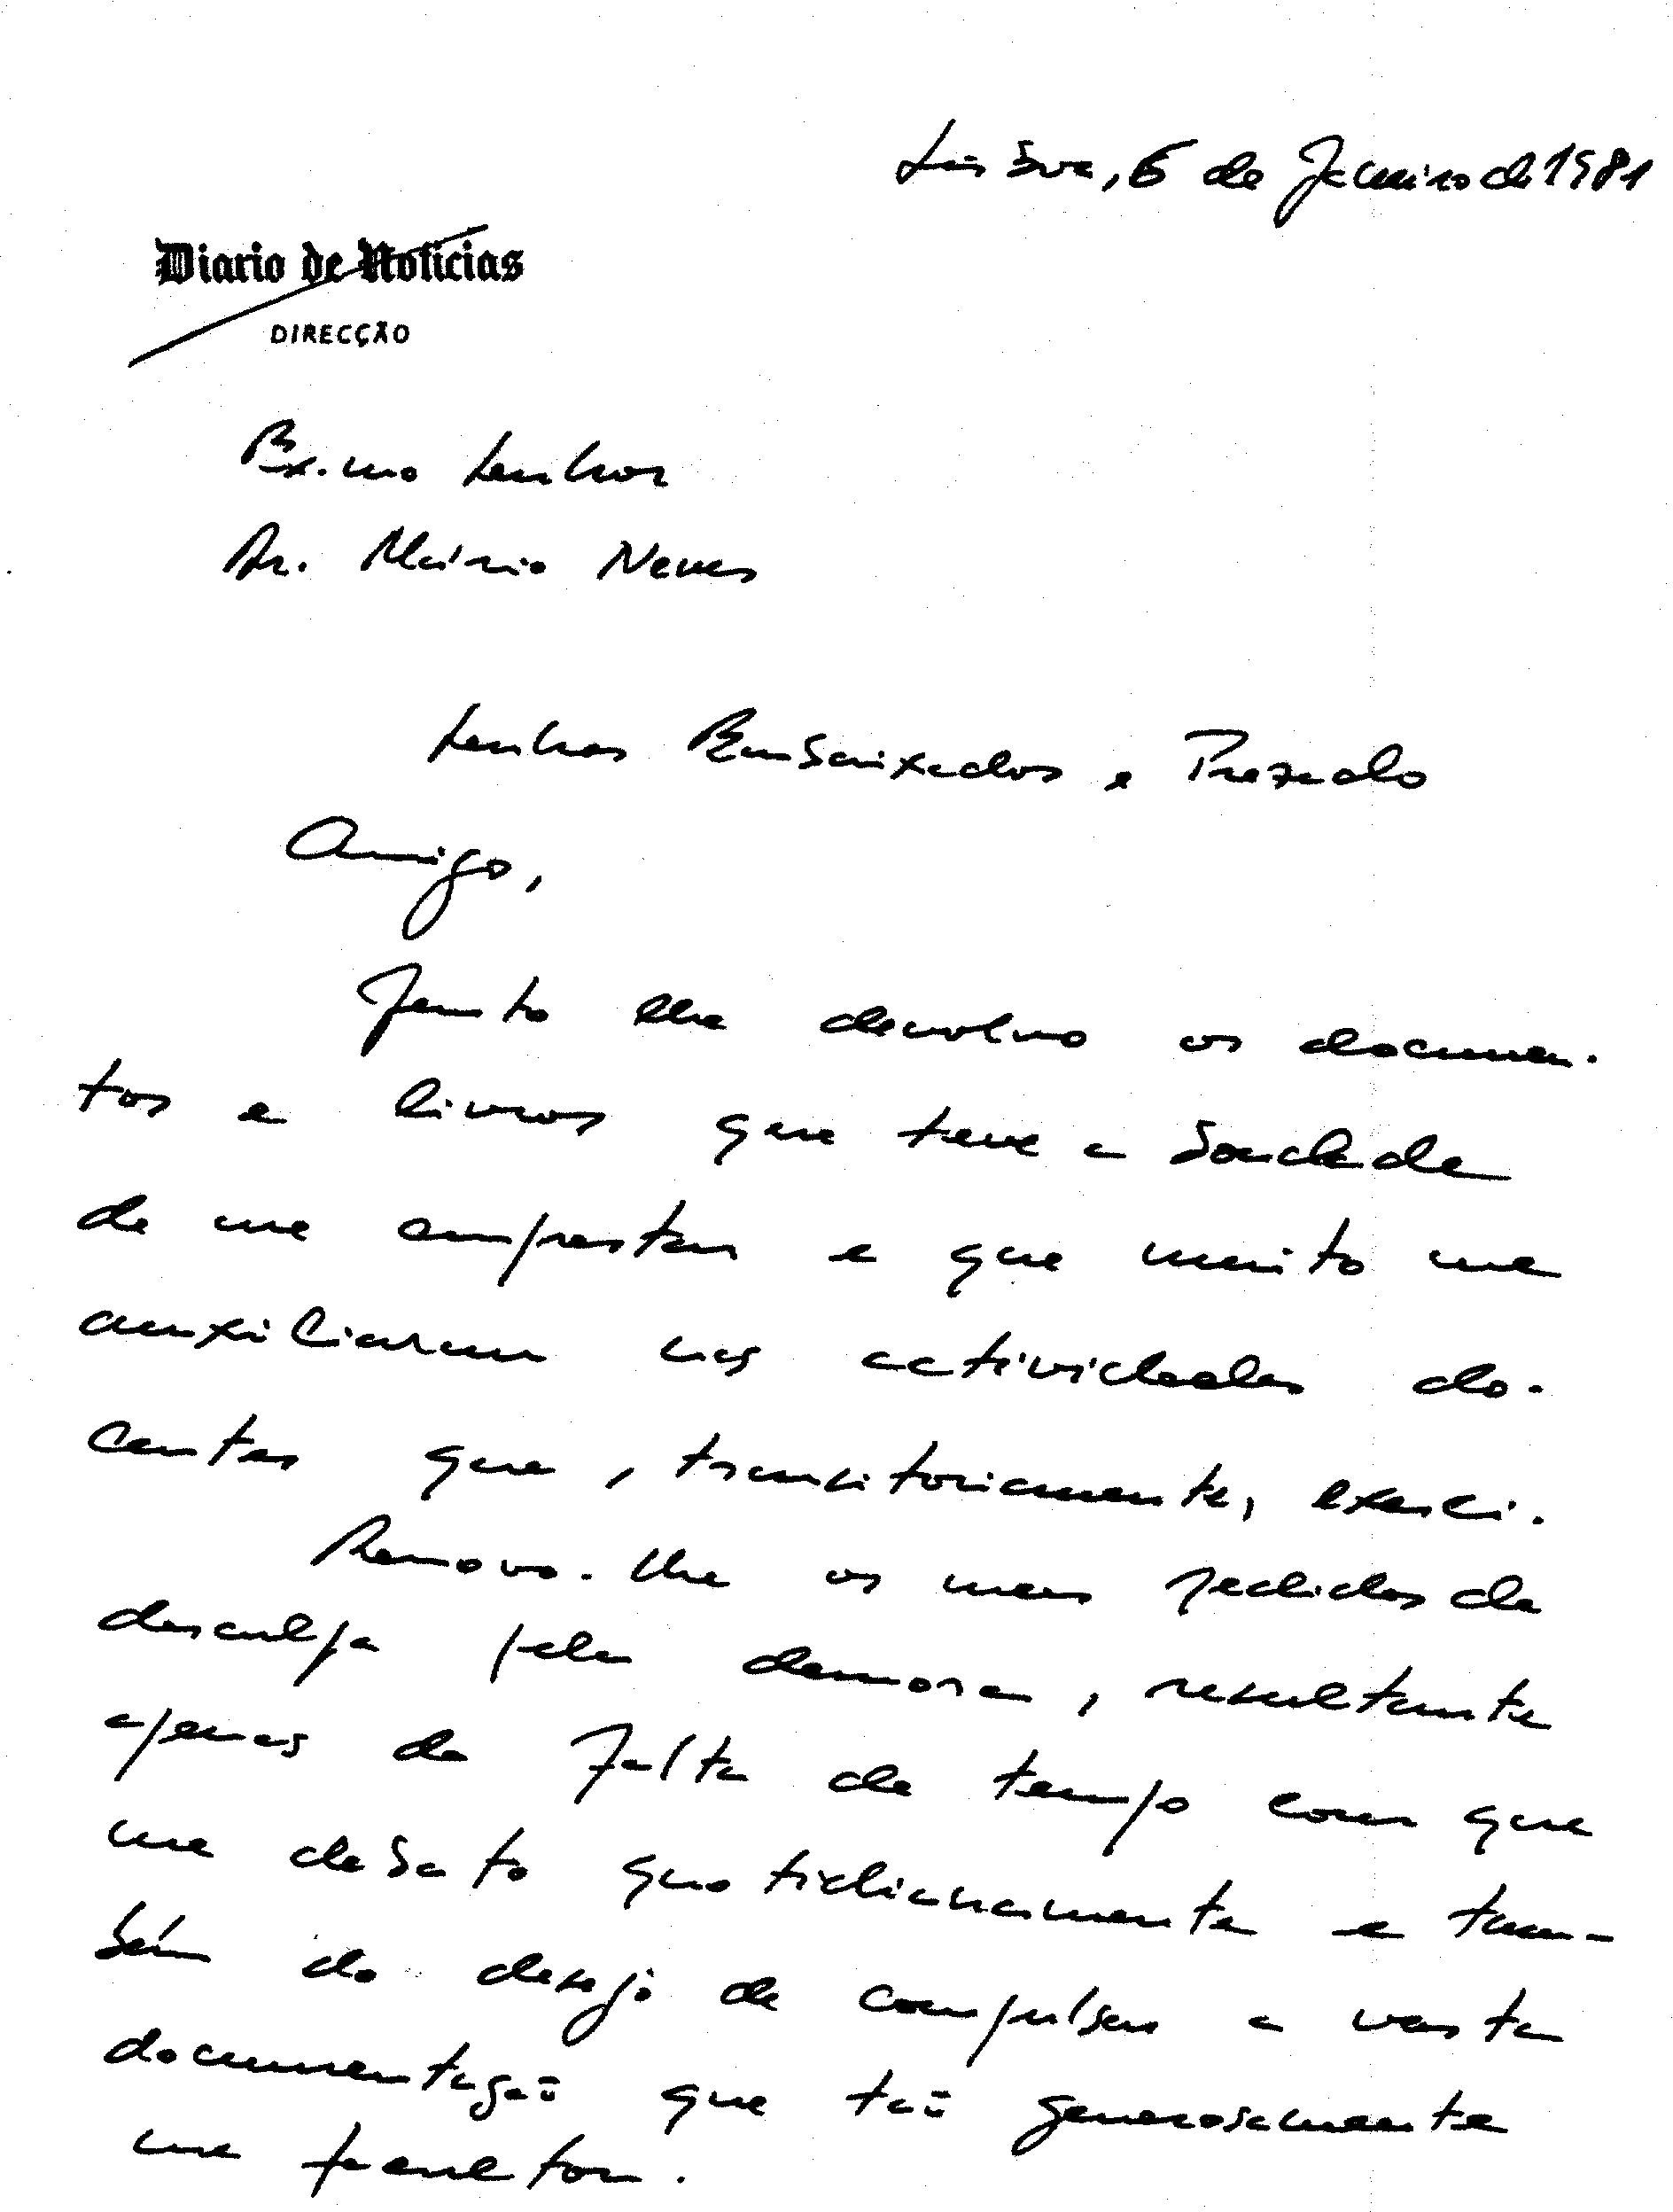 Lisboa, 6 de Janeiro de 1981
Diario de Noticias
DIRECÇÃO
Ex.mo Senhor
Dr. Mário Neves
Senhor Embaixador e Prezado
Amigo,
Junto lhe devolvo os documen-
tos e livros que teve a bondade
de me emprestar e que muito me
auxiliaram nas actividades do-
centes que, transitoriamente, exerci.
Renovo-lhe os meus pedidos de
desculpa pela demora, resultante
apenas da falta de tempo com que
me debato quotidianamente e tam-
bém do desejo de compulsar a vasta
documentação que tão generosamente
me facultou.